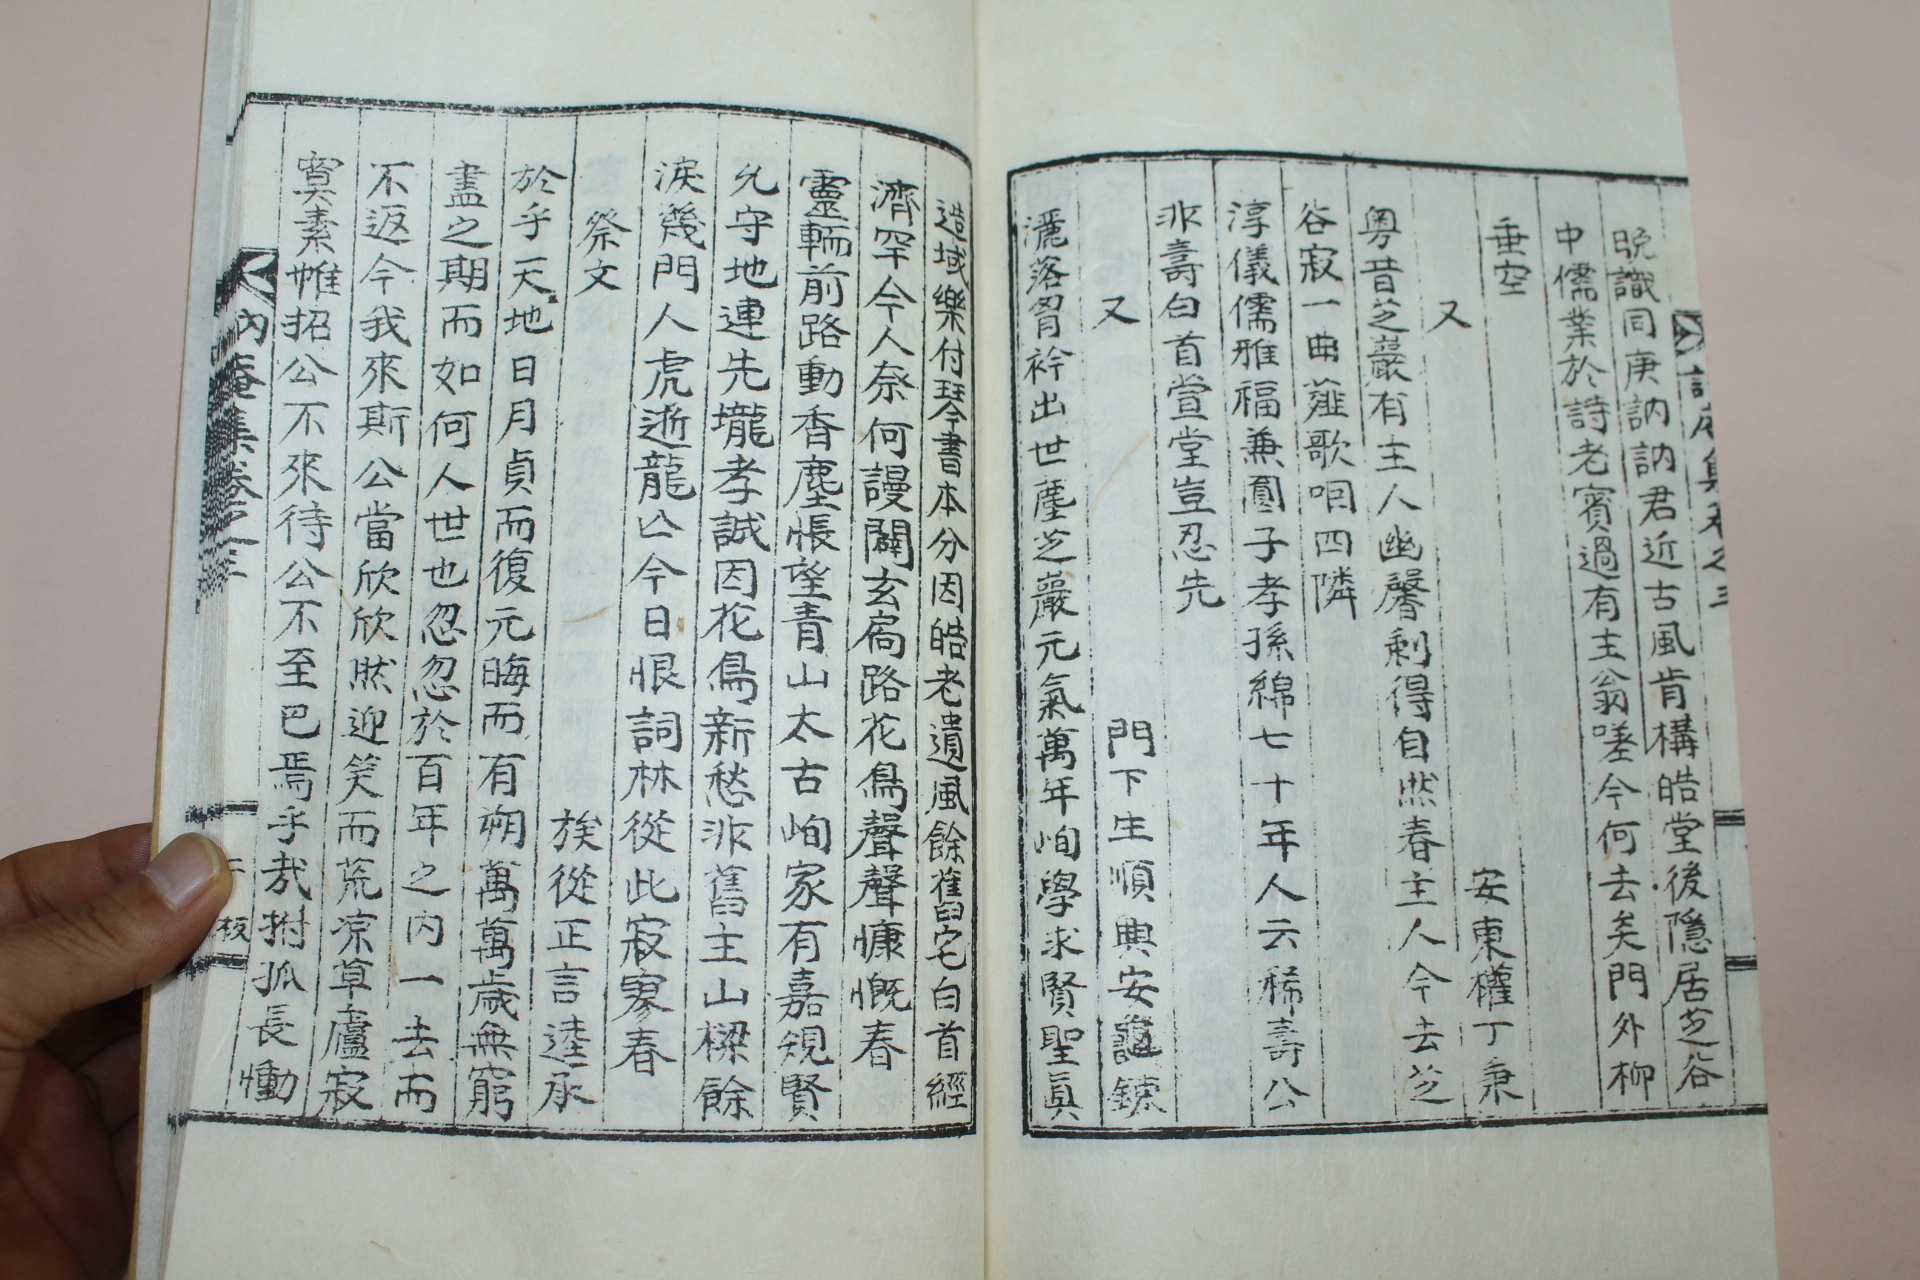 晩識同庚訥訥君近古風肯構皓堂後隱居芝谷
中儒業於詩老賓過有主翁嗟今何去矣門外柳
垂空
安東權丁秉
又
粤昔芝巖有主人幽馨剩得自然春主人今去芝
谷寂一曲薤歌咽四隣
淳儀儒雅福兼圓子孝孫綿七十年人云稀壽公
非壽白首萱堂豈忍先
又
門下生順興安 鍊
灑落胷衿出世塵芝巖元氣萬年峋學求賢聖眞
造域樂付琴書本分因皓老遺風餘舊宅白首經
濟罕今人奈何謾闢玄扃路花鳥聲聲慷慨春
靈輀前路動香塵悵望青山太古峋家有嘉規賢
允守地連先壠孝誠因花鳥新愁非舊主山樑餘
淚幾門人虎逝龍亡今日恨詞林從此寂寥春
祭文
族從正言逵承
於乎天地日月貞而復元晦而有朔萬萬歲無窮
盡之期而如何人世也忽忽於百年之内一去而
不返今我來斯公當欣欣然迎笑而荒凉草廬寂
寞素帷招公不來待公不至已焉乎哉拊孤長慟
内庵集卷之三
板